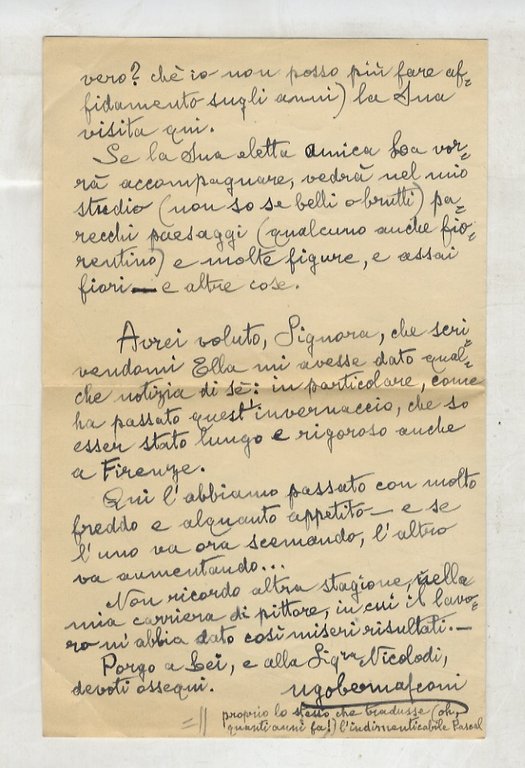 vero? chè io non posso più fare af=
fidamento sugli anni) la Sua
visita qui.
Se la Sua eletta amica La vor=
rà accompagnare, vedrà nel mio
studio (non so se belli o brutti) pa=
recchi paesaggi (qualcuno anche fio=
rentino) e molte figure, e assai
fiori — e altre cose.
Avrei voluto, Signora, che scri=
vendomi Ella mi avesse dato qual=
che notizia di sè: in particolare, come
ha passato quest'invernaccio, che so
esser stato lungo e rigoroso anche
a Firenze.
Qui l'abbiamo passato con molto
freddo e alquanto appetito — e se
l'uno va ora scemando, l'altro
va aumentando...
Non ricordo altra stagione, nella
mia carriera di pittore, in cui il lavo=
ro m'abbia dato così miseri risultati. —
Porgo a Lei, e alla Sigra Nicolodi,
devoti ossequi. Ugo Bernasconi
=// proprio lo stesso che tradusse (oh,
quanti anni fa!) l'indimenticabile Pascal